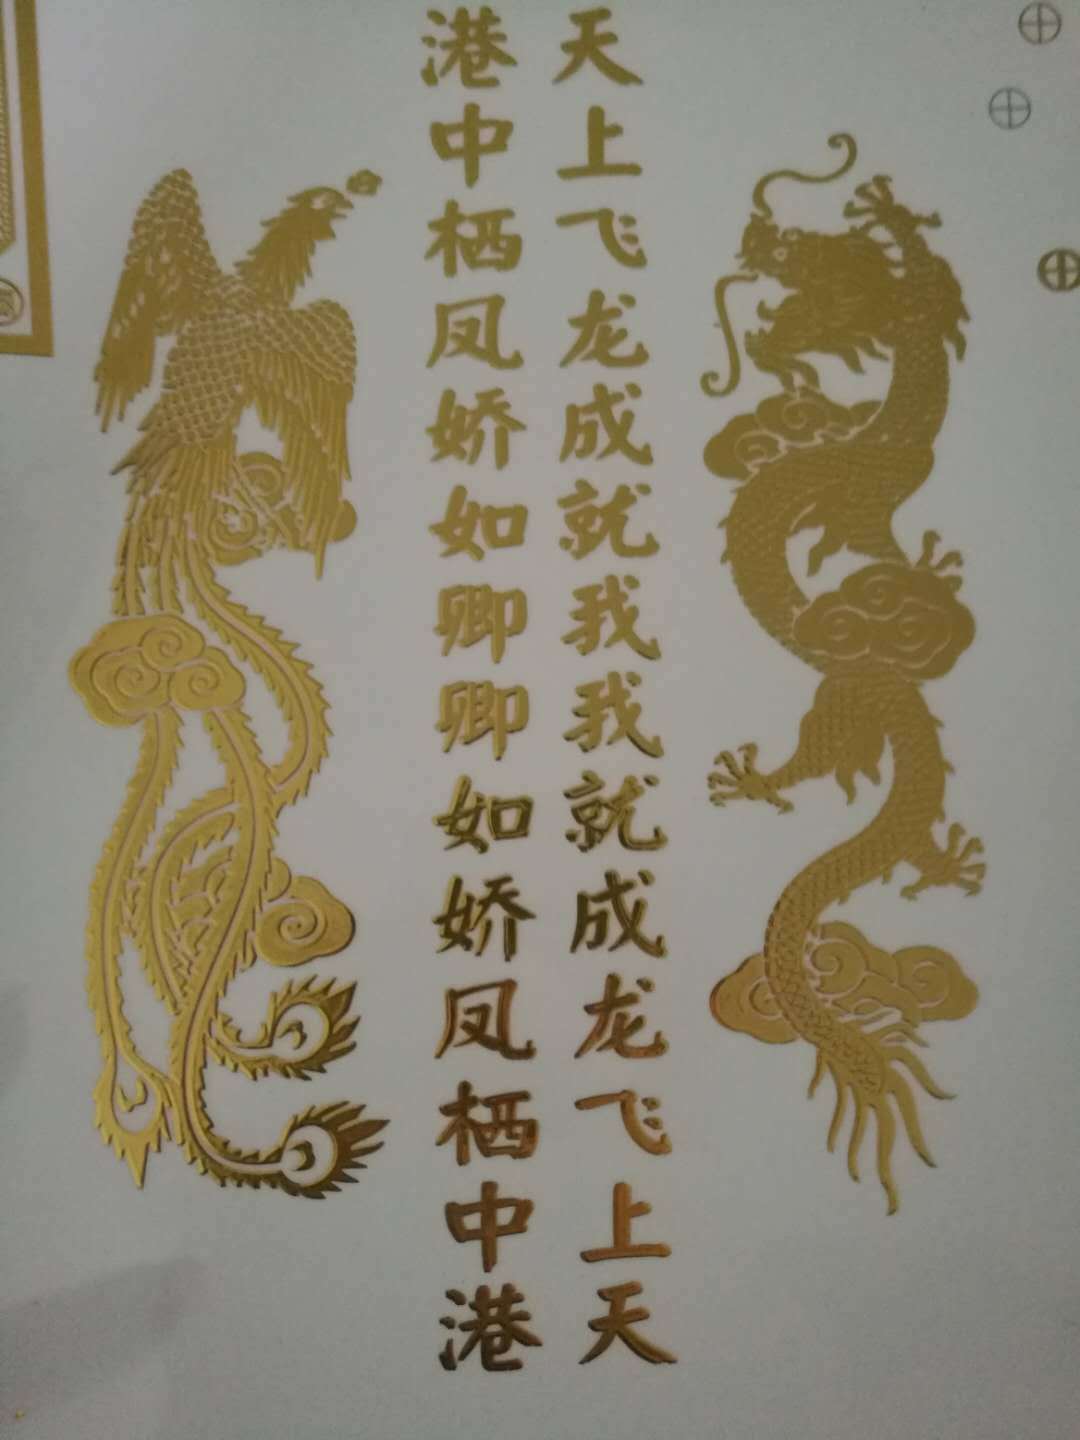 天上飞龙成就我我就成龙飞上天
港中栖凤娇如卿卿如娇凤栖中港